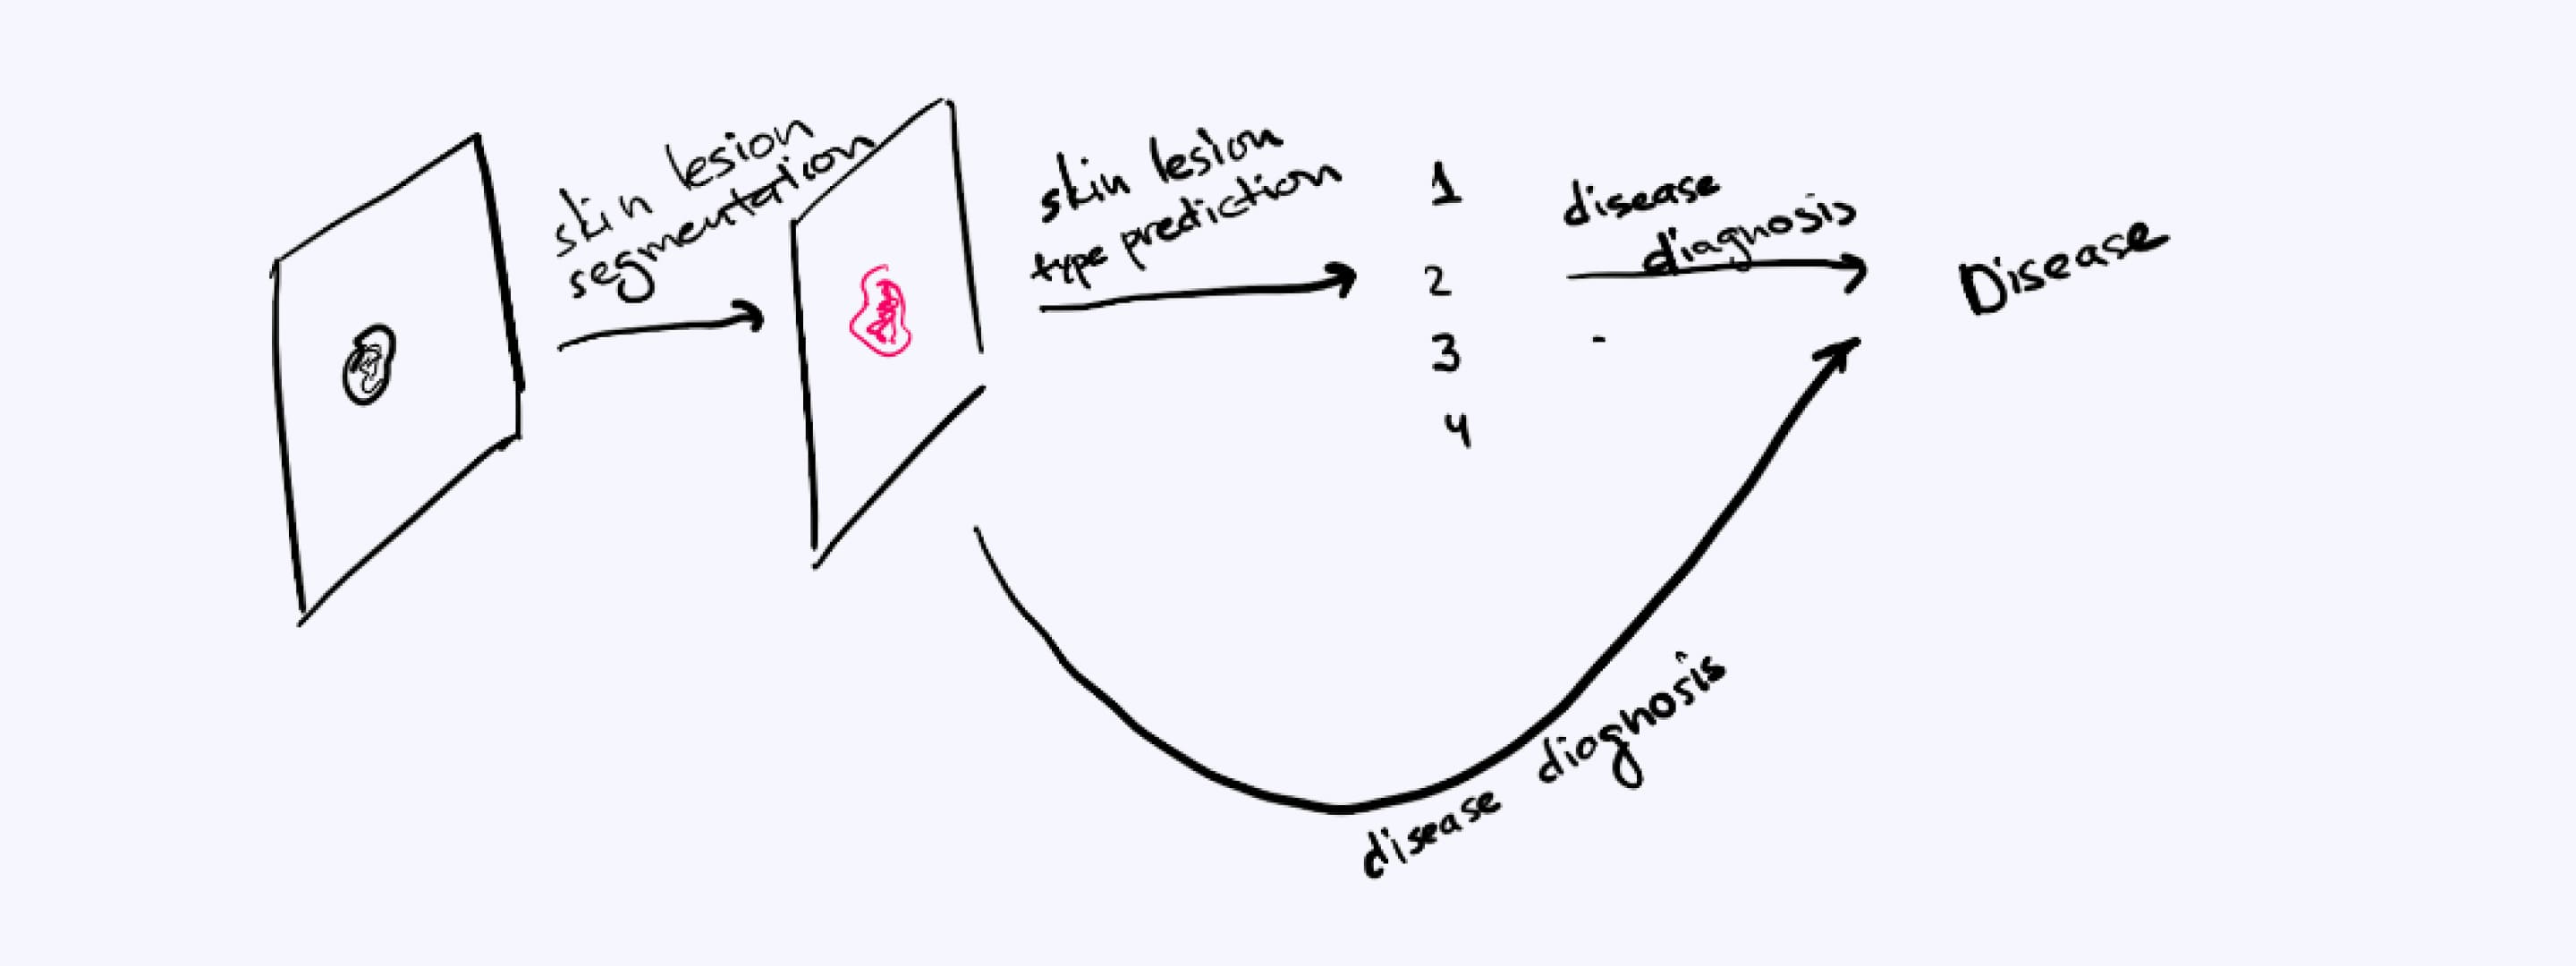 skin lesion
segmentation
skin lesion
type prediction
1
2
3
4
disease
diagnosis
Disease
disease diagnosis